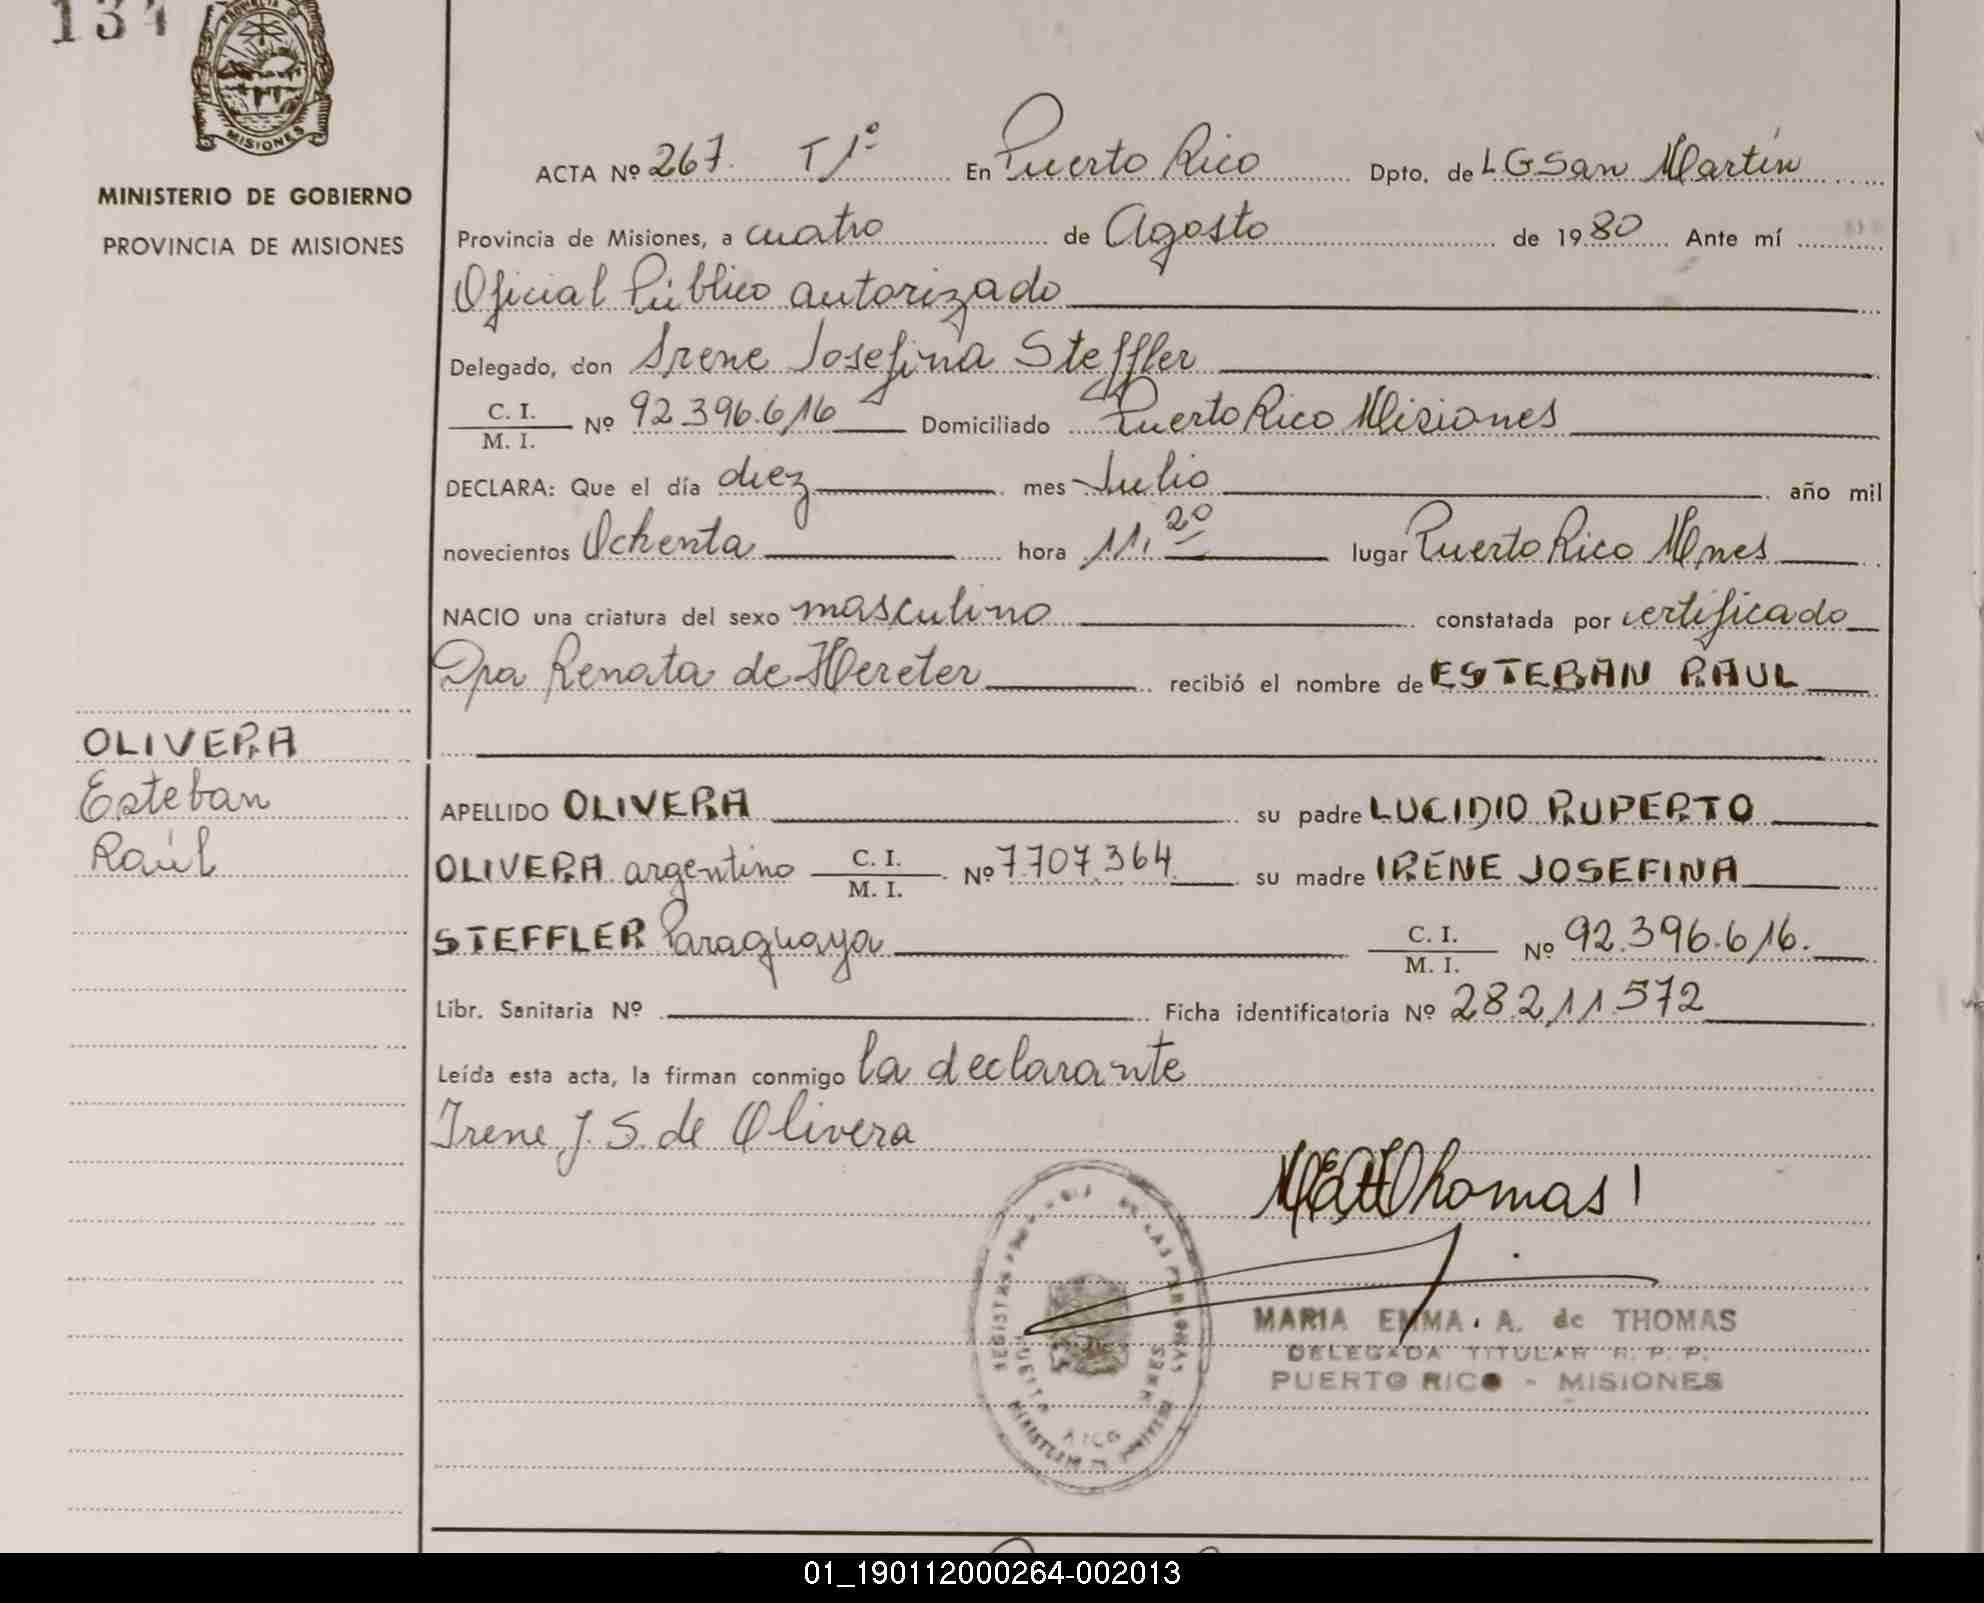 MISIONES
MINISTERIO DE GOBIERNO
PROVINCIA DE MISIONES
OLIVERA
Esteban
Raúl
ACTA Nº 267. T 1º En Puerto Rico Dpto. de L G San Martín
Provincia de Misiones, a cuatro de Agosto de 1980 Ante mí
Oficial Público autorizado
Delegado, don Irene Josefina Steffler
C. I.
M. I. Nº 92.396.616 Domiciliado Puerto Rico Misiones
DECLARA: Que el día diez mes Julio año mil
novecientos Ochenta hora 11,20 lugar Puerto Rico Mnes
NACIO una criatura del sexo masculino constatada por certificado
Dra Renata de Hereter recibió el nombre de ESTEBAN RAUL
APELLIDO OLIVERA su padre LUCIDIO RUPERTO
OLIVERA argentino C. I.
M. I. Nº 7.707.364 su madre IRENE JOSEFINA
STEFFLER Paraguaya C. I.
M. I. Nº 92.396.616.
Libr. Sanitaria Nº Ficha identificatoria Nº 28.211.572
Leída esta acta, la firman conmigo la declarante
Irene J. S. de Olivera
MARIA EMMA. A. de THOMAS
DELEGADA TITULAR R. P. P.
PUERTO RICO - MISIONES
01_190112000264-002013